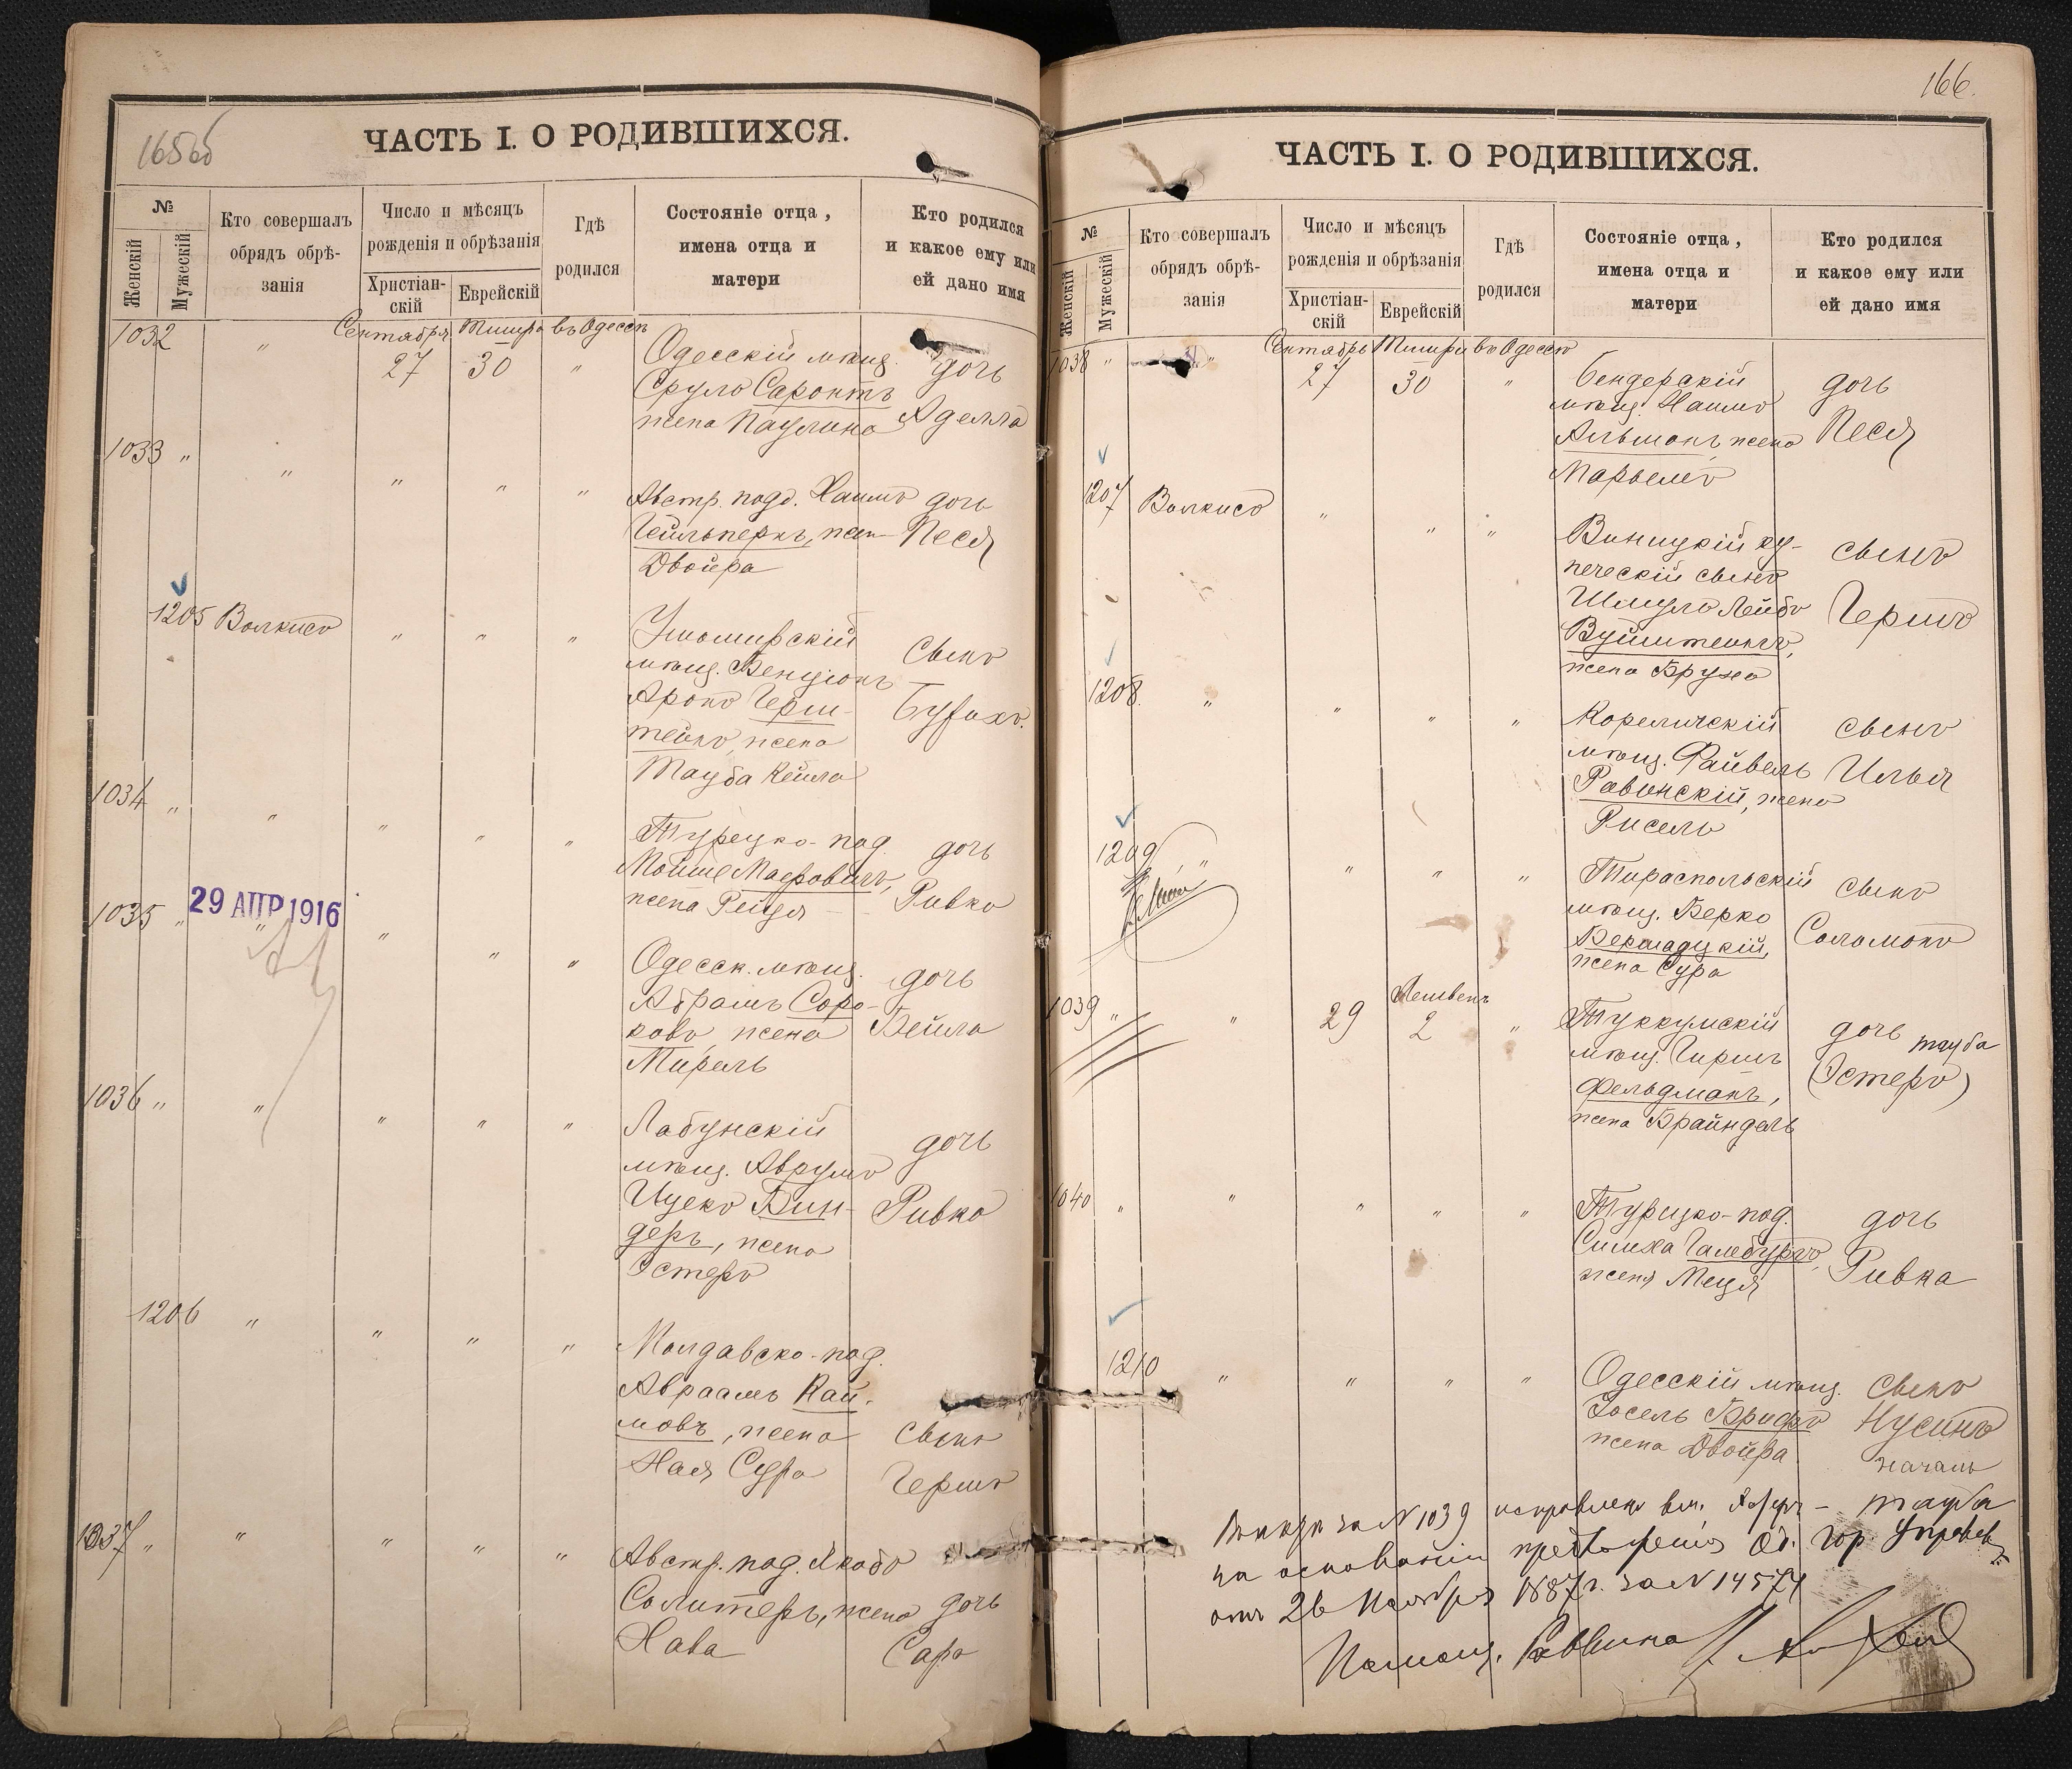 165об
ЧАСТЬ I. О РОДИВШИХСЯ.
№
Женскій
Мужескій
Кто совершалъ
обрядъ обрѣ-
занія
Число и мѣсяцъ
рожденія и обрѣзанія
Христіан-
скій
Еврейскій
Гдѣ
родился
Состояніе отца,
имена отца и
матери
Кто родился
и какое ему или
ей дано имя
1032 " Сентября 27 Тишри 30 въ Одессѣ "
Одесскій мѣщ.
Сруль Саронтъ
жена Паулина
дочь
Аделла
1033 " " " " "
Австр. подд. Хаимъ
Гейльпернъ, жен
Двойра
дочь
Песя
1205 Волкисъ " " "
Житомирскій
мѣщ. Бенціонъ
Аронъ Герш-
тейнъ, жена
Тауба Кейла
сынъ
Бурухъ.
1034 " " " " "
Турецко-под.
Мойше Маеровичъ,
жена Рейзя
дочь
Ривка
1035 " " " " "
29 АПР 1916
Одесск. мѣщ.
Абрамъ Соро-
ковъ, жена
Мирель
дочь
Бейла
1036 " " " " "
Лабунскій
мѣщ. Аврумъ
Ицекъ Бин-
деръ, жена
Эстеръ
дочь
Ривка
1206 " " " "
Молдавско-под.
Авраамъ Кай-
мовъ, жена
Хая Сура
сынъ
Гершъ
1037 " " " " "
Австр. под. Якобъ
Солитеръ, жена
Хава
дочь
Сара
166.
ЧАСТЬ I. О РОДИВШИХСЯ.
№
Женскій
Мужескій
Кто совершалъ
обрядъ обрѣ-
занія
Число и мѣсяцъ
рожденія и обрѣзанія
Христіан-
скій
Еврейскій
Гдѣ
родился
Состояніе отца,
имена отца и
матери
Кто родился
и какое ему или
ей дано имя
1038 " " Сентябрь 27 Тишри 30 въ Одессѣ "
Бендерскій
мѣщ. Хаимъ
Альтманъ, жена
Марьемъ
дочь
Песя
1207 Волкисъ " " "
Виницкій ку-
печескій сынъ
Шмуль Лейбъ
Вуйнштейнъ,
жена Бруха
сынъ
Гершъ
1208. " " " "
Кореличскій
мѣщ. Файвель
Равинскій, жена
Рисель
сынъ
Илья
1209 " " " "
Тираспольскій
мѣщ. Берко
Бершадцкій,
жена Сура
сынъ
Соломонъ
1039 " " 29 Хешвенъ 2 "
Туккумскій
мѣщ. Гиршъ
Фельдманъ,
жена Брайндель
дочь Тауба
(Эстеръ)
1040 " " " " "
Турецко-под.
Симха Гамбургъ,
жена Меця
дочь
Ривка
1210 " " " "
Одесскій мѣщ.
Іосель Брифъ
жена Двойра
сынъ
Нусинъ
за № 1039 исправлено Тауба
на основаніи предложенія Од. Гор. Управы
отъ 26 Ноября 1887 г. за № 14574
Помощ. Раввина